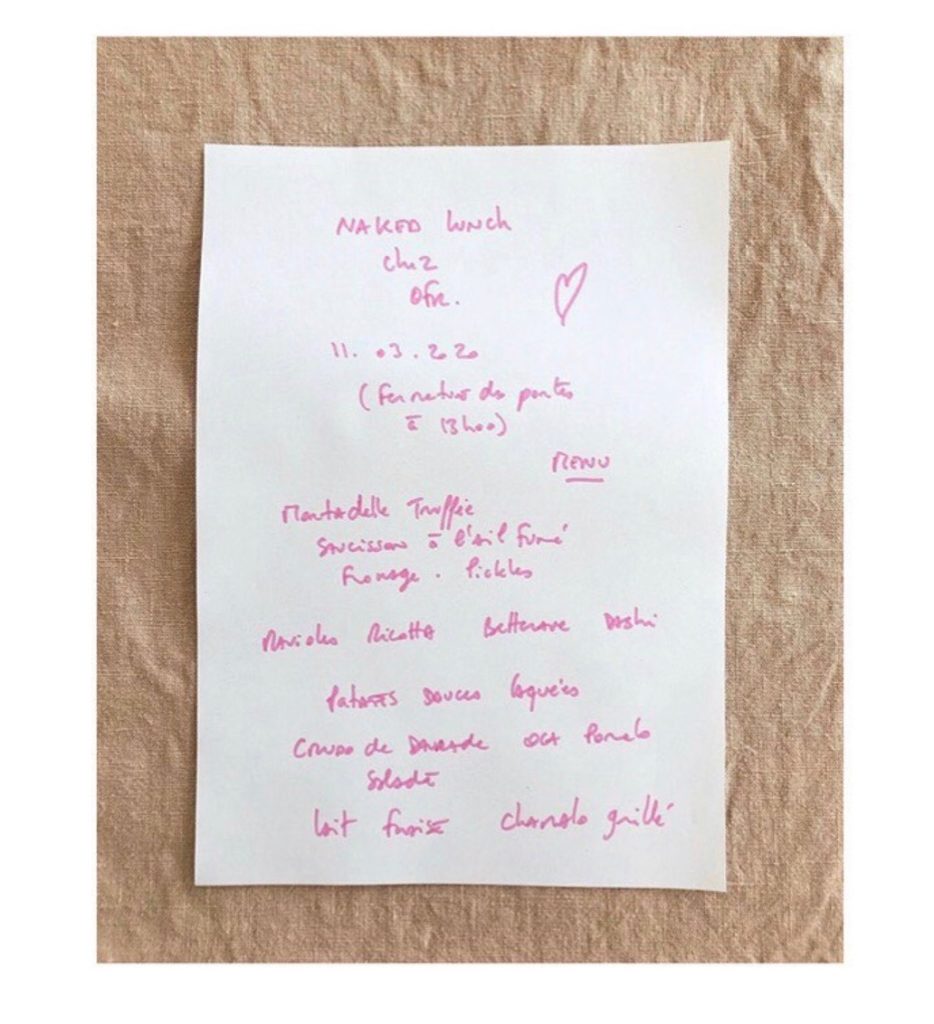 NAKED LUNCH
chez
Ofr.
11. 03. 2020
(Fermeture des portes
à 13h00)
MENU
Mortadelle Truffée
Saucisson à l'ail fumé
Fromage . Pickles
Ravioles Ricotta Betterave Dashi
Patates douces laquées
Crudo de Daurade OCA Pomelo
Salade
lait fraise chamalo grillé